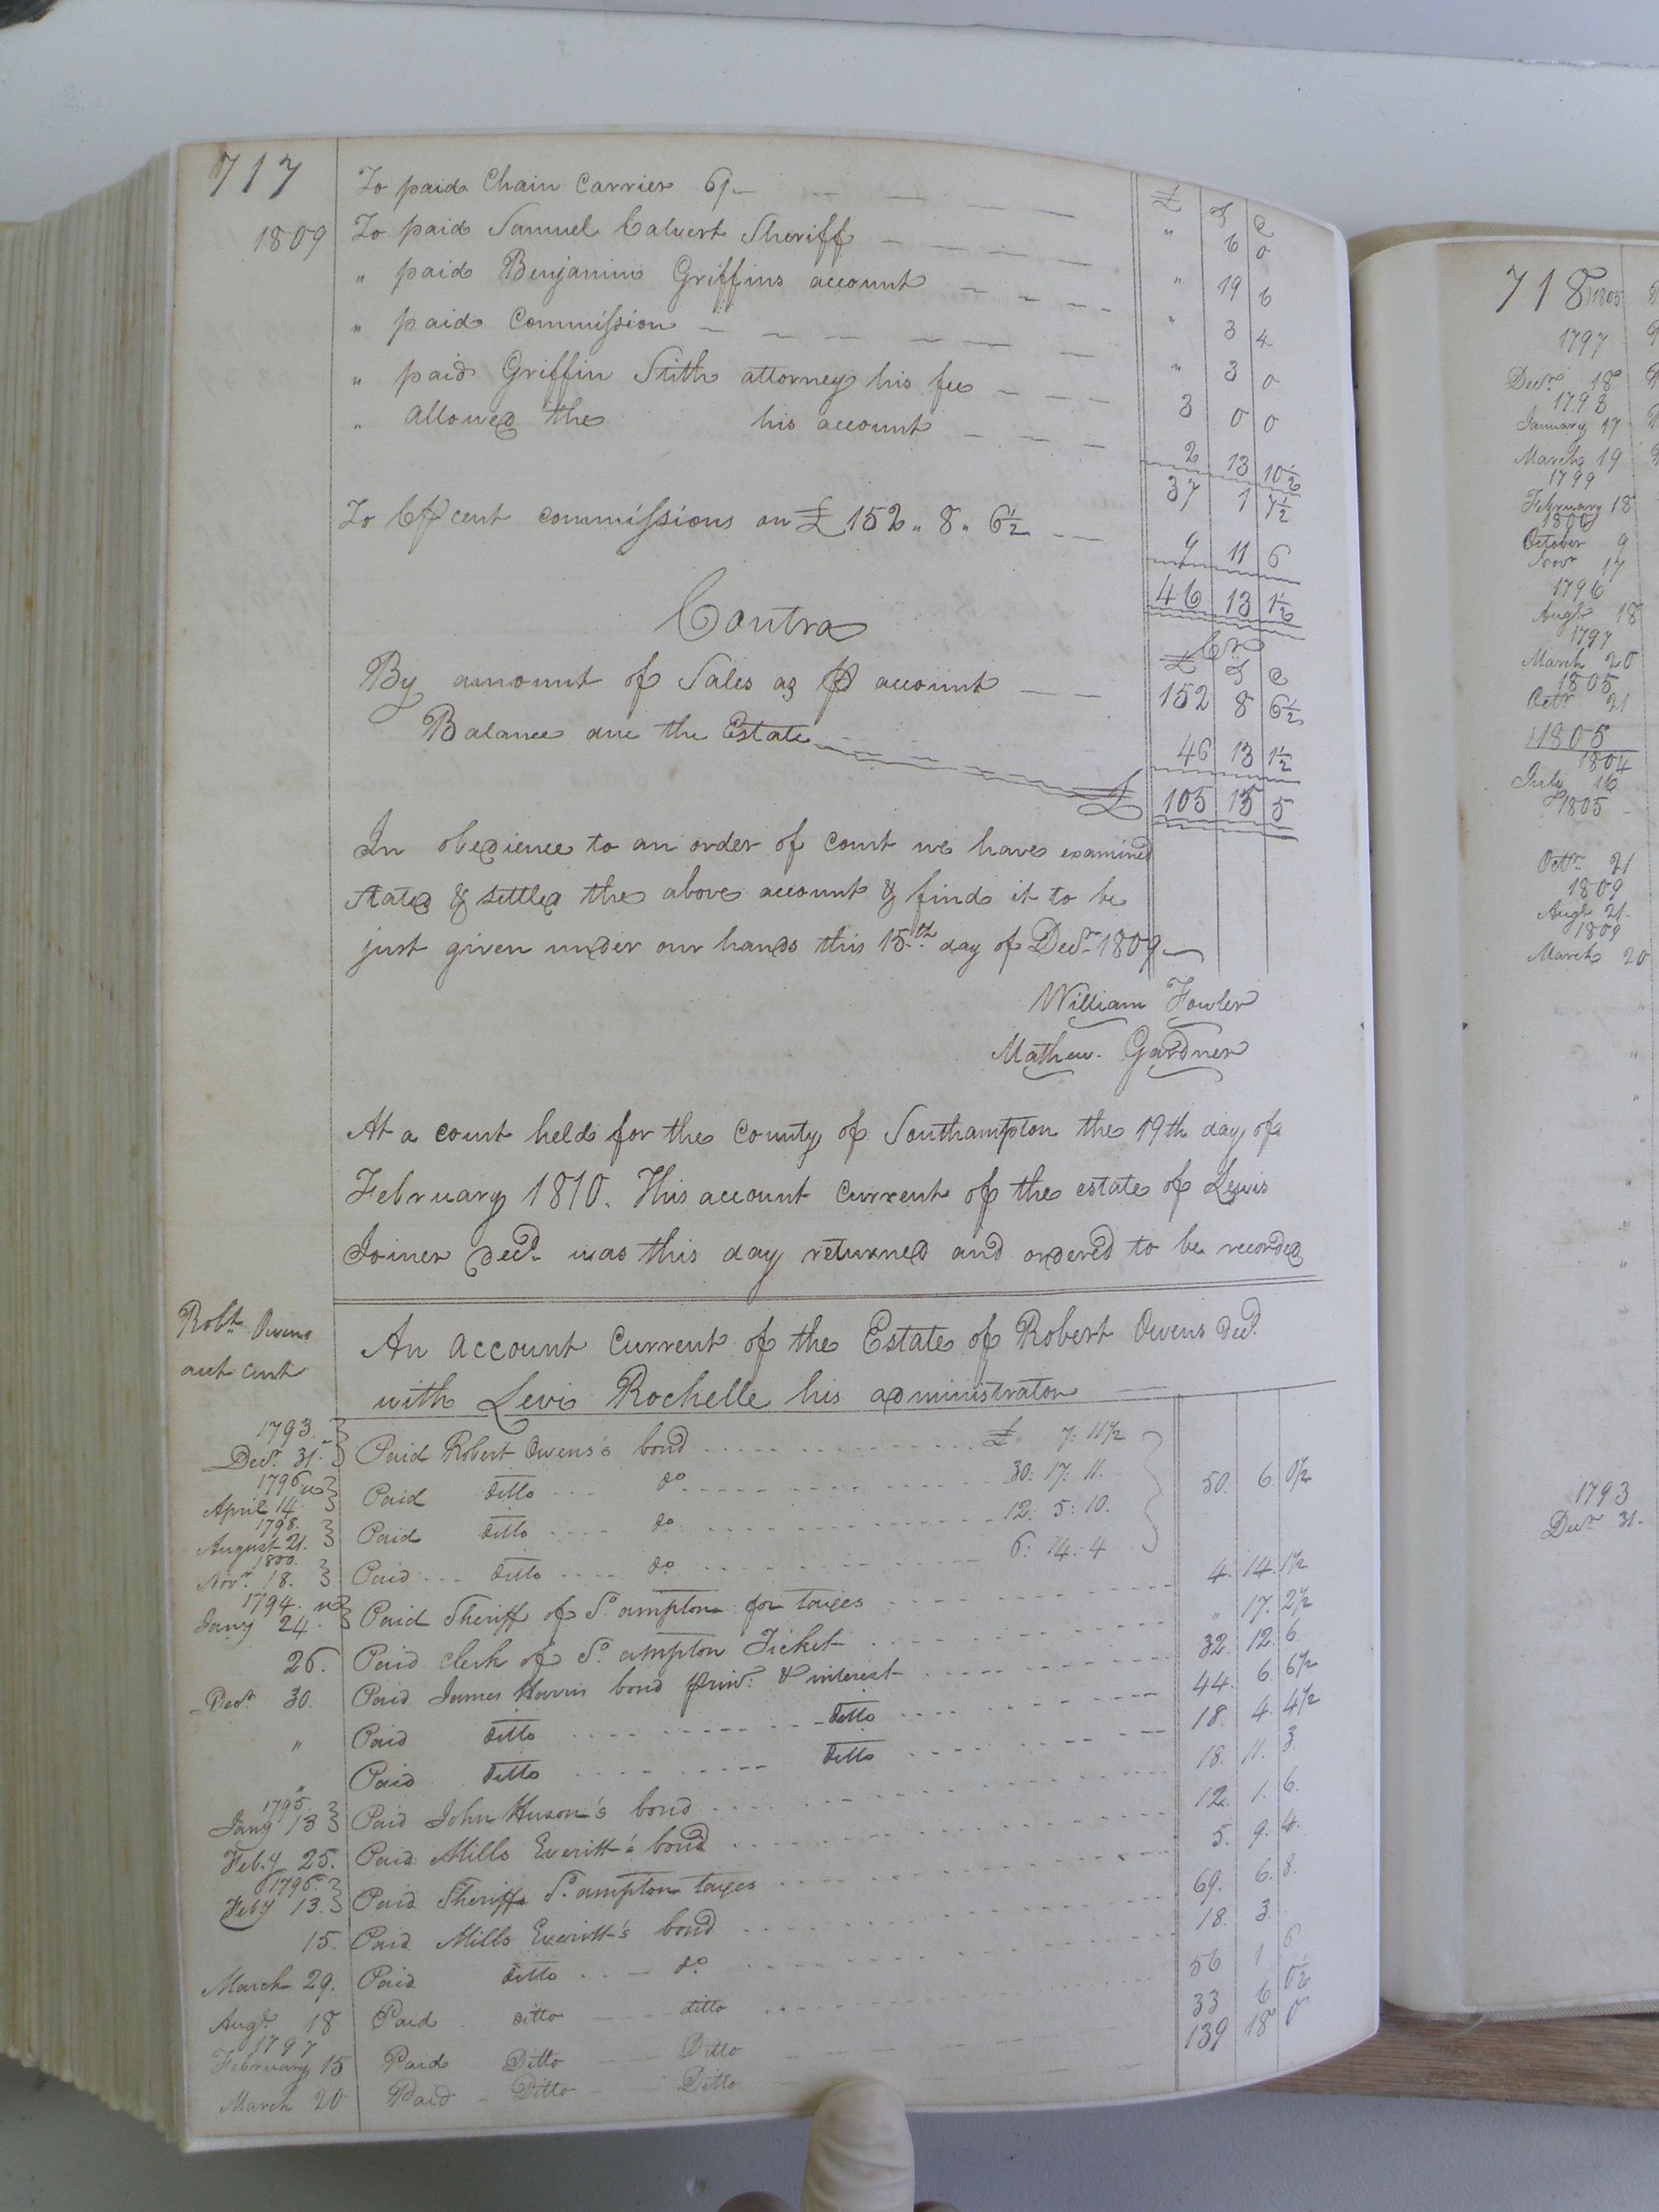 717
£ S d
To paid Chain Carrier 6/- " 6 0
1809 To paid Samuel Calvert Sheriff " 19 6
" paid Benjamin Griffins account " 3 4
" paid Commission " 3 0
" paid Griffin Stith attorney his fee 3 0 0
" allowed the his account 2 13 10½
37 1 7½
To 6 ⅌ cent commissions on £ 152 " 8 " 6½ 9 11 6
46 13 1½
Contra Cr.
£ S d
By amount of Sales as ⅌ account 152 8 6½
Balance due the Estate 46 13 1½
£ 105 15 5
In obedience to an order of court we have examined
stated & settled the above account & find it to be
just given under our hands this 15th day of Decr. 1809
William Fowler
Mathew. Gardner
At a court held for the County of Southampton the 19th day of
February 1810. This account current of the estate of Lewis
Joiner decd. was this day returned and ordered to be recorded
Robt. Owens
acct curt
An account Current of the Estate of Robert Owens decd.
with Levi Rochelle his administrator
1793.
Decr. 31. Paid Robert Owens's bond £ 7: 11½
1796
April 14 Paid ditto do 30: 17: 11. 50. 6. 0½
1798.
August 21. Paid ditto do 12: 5: 10.
1800.
Novr. 18. Paid ditto do 6: 14: 4
1794.
Jany 24. Paid Sheriff of So. ampton for taxes 4. 14. 1½
26. Paid clerk of So. ampton Ticket " 17. 2½
Decr. 30. Paid James Harris bond prin. & interest 32. 12. 6.
" Paid ditto ditto 44. 6. 6½
" Paid ditto ditto 18. 4. 4½
1795.
Jany 13 Paid John Huson's bond 18. 11. 3.
Feby 25. Paid Mills Everitt's bond 12. 1. 6.
1796.
Feby 13. Paid Sheriff So. ampton taxes 5. 9. 4.
15. Paid Mills Everitt's bond 69. 6. 8.
March 29. Paid ditto do 18. 3.
Augt. 18 Paid ditto ditto 56 1 6
1797
February 15 Paid Ditto Ditto 33 6 0½
March 20 Paid Ditto Ditto 139 18 0
718
1805
1797
Decr. 18
1798
January 17
March 19
1799
February 18
1800
October 9
Novr 17
1796
Augt. 18
1797
March 20
1805
Octr. 21
1805
1804
July 16
1805
Octr. 21
1809
Augt 21.
1809
March 20
1793
Decr. 31.